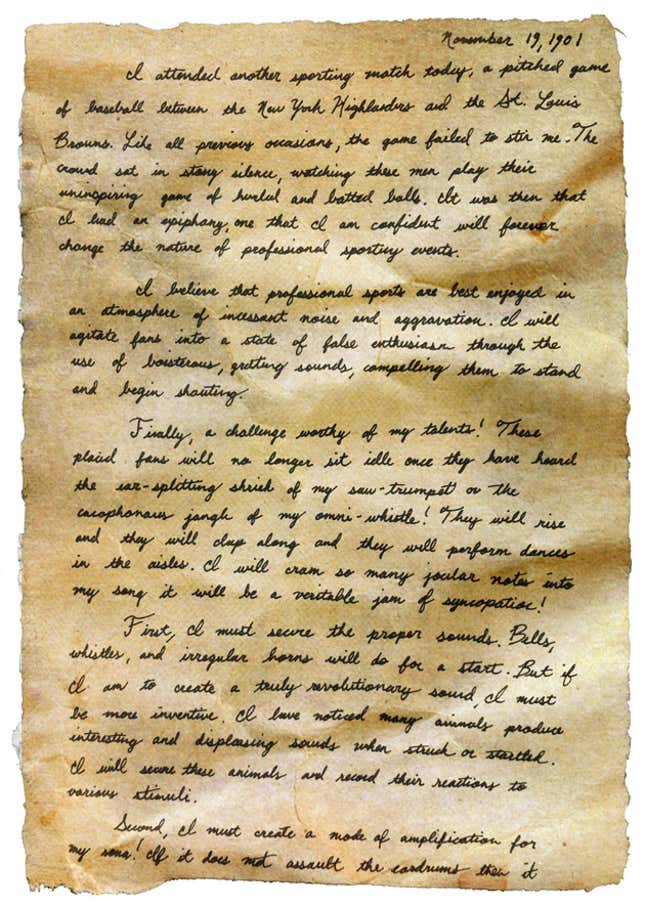 November 19, 1901
I attended another sporting match today, a pitched game
of baseball between the New York Highlanders and the St. Louis
Browns. Like all previous occasions, the game failed to stir me. The
crowd sat in stony silence, watching these men play their
uninspiring game of hurled and batted balls. It was then that
I had an epiphany, one that I am confident will forever
change the nature of professional sporting events.
I believe that professional sports are best enjoyed in
an atmosphere of incessant noise and aggravation. I will
agitate fans into a state of false enthusiasm through the
use of boisterous, grating sounds, compelling them to stand
and begin shouting.
Finally, a challenge worthy of my talents! These
placid fans will no longer sit idle once they have heard
the ear-splitting shriek of my saw-trumpet or the
cacophonous jangle of my omni-whistle! They will rise
and they will clap along and they will perform dances
in the aisles. I will cram so many jocular notes into
my song it will be a veritable jam of syncopation!
First, I must secure the proper sounds. Bells,
whistles, and irregular horns will do for a start. But if
I am to create a truly revolutionary sound, I must
be more inventive. I have noticed many animals produce
interesting and displeasing sounds when struck or startled.
I will secure these animals and record their reactions to
various stimuli.
Second, I must create a mode of amplification for
my song! If it does not assault the eardrums then it